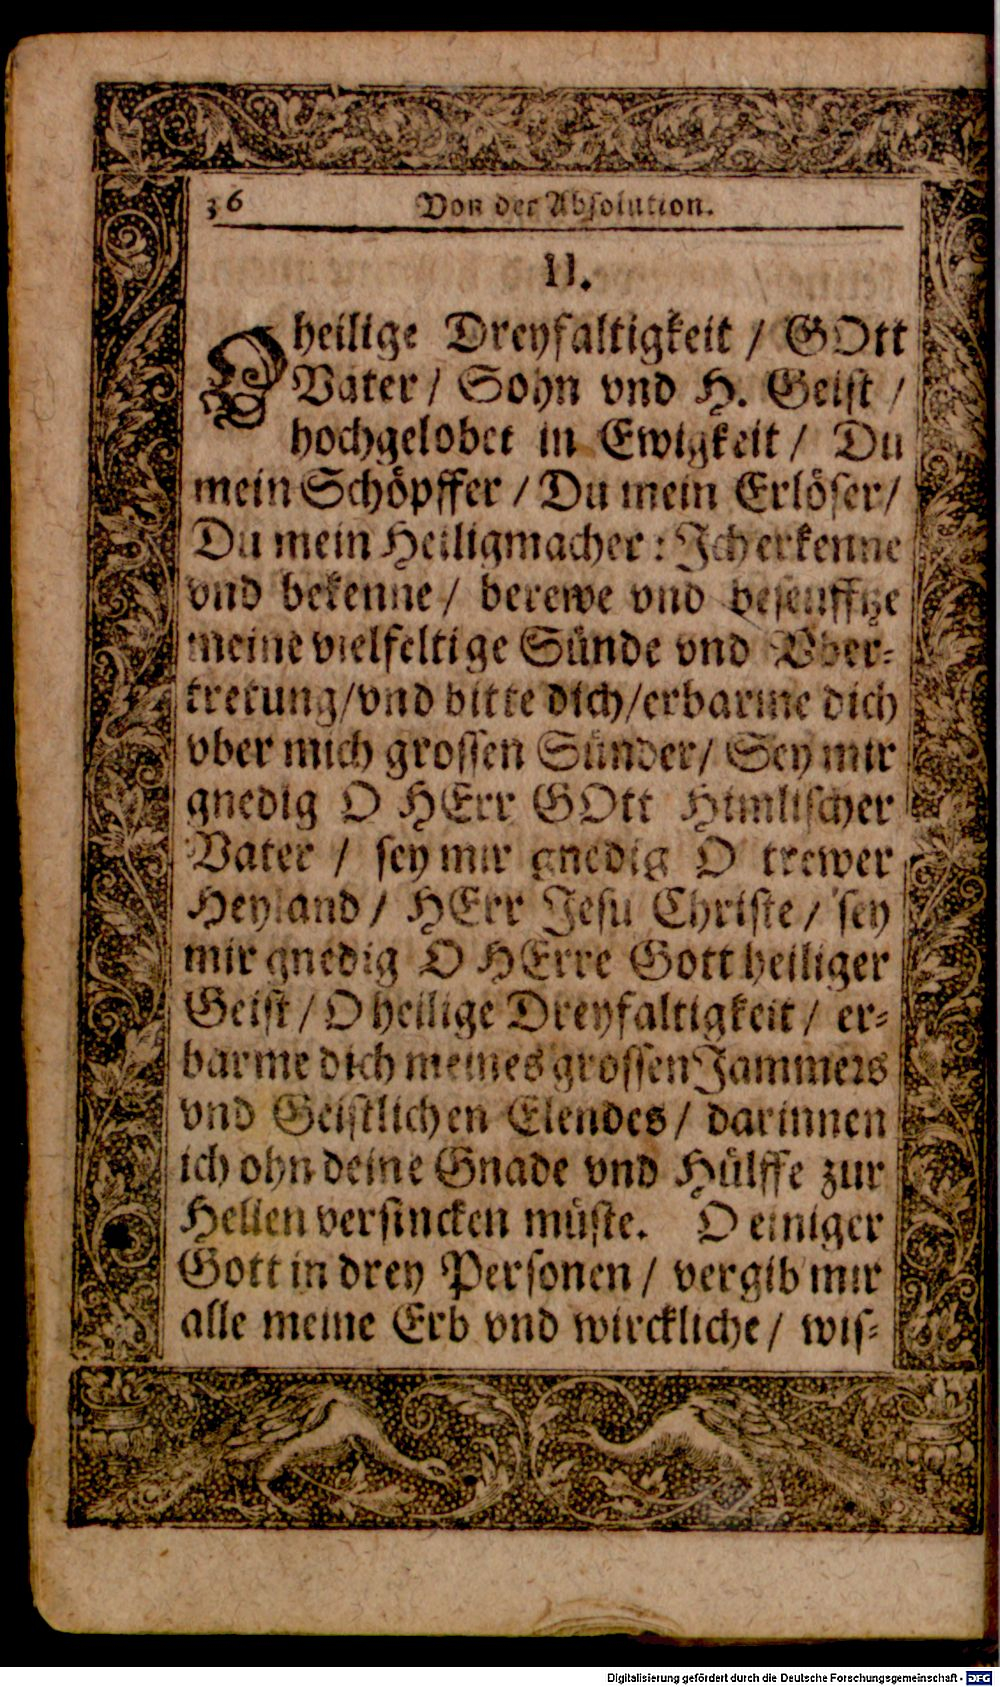 36 Von der Absolution.
II.
O heilige Dreyfaltigkeit / GOtt
Vater / Sohn vnd H. Geist /
hochgelobet in Ewigkeit / Du
mein Schöpffer / Du mein Erlöser /
Du mein Heiligmacher : Ich erkenne
vnd bekenne / berewe vnd beseufftze
meine vielfeltige Sünde vnd Vber-
tretung / vnd bitte dich / erbarme dich
vber mich grossen Sünder / Sey mir
gnedig O HErr GOtt Himlischer
Vater / sey mir gnedig O trewer
Heyland / HErr Jesu Christe / sey
mir gnedig O HErre Gott heiliger
Geist / O heilige Dreyfaltigkeit / er-
barme dich meines grossen Jammers
vnd Geistlichen Elendes / darinnen
ich ohn deine Gnade vnd Hülffe zur
Hellen versincken müste. O einiger
Gott in drey Personen / vergib mir
alle meine Erb vnd wirckliche / wis-
Digitalisierung gefördert durch die Deutsche Forschungsgemeinschaft - DFG